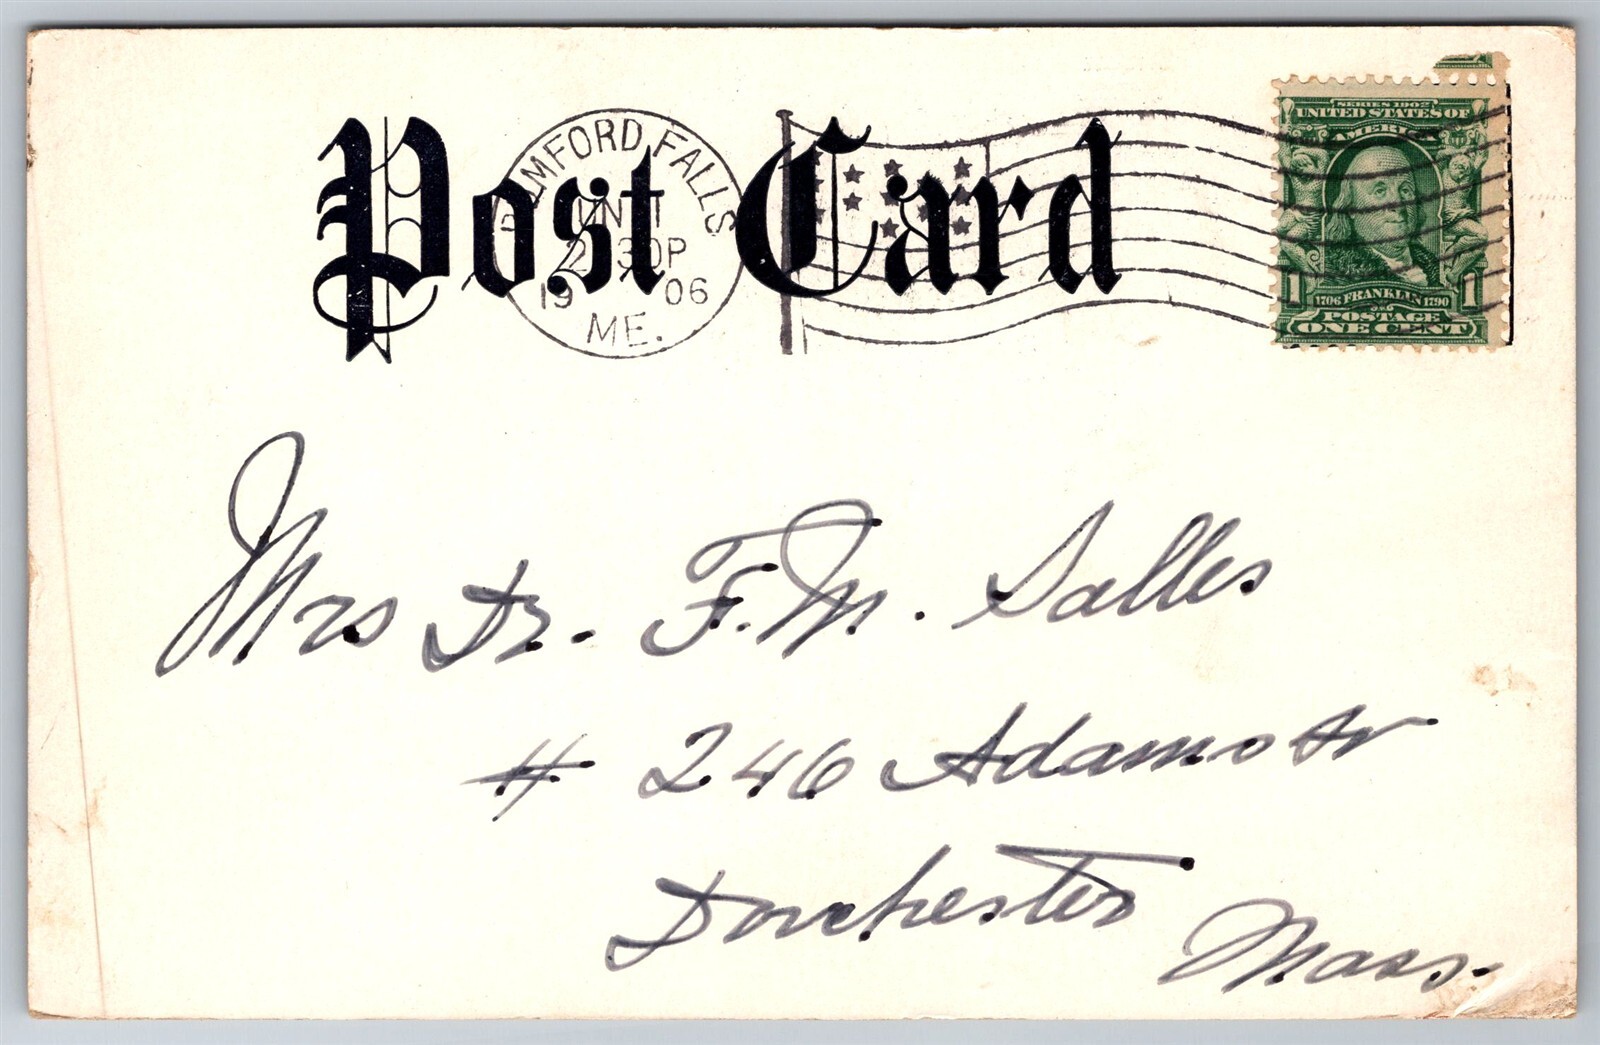 Post Card
RUMFORD FALLS
2 30P
19 06
ME.
SERIES 1902
UNITED STATES OF
AMERICA
1 1706 FRANKLIN 1790 1
POSTAGE
ONE CENT
Mrs Dr. F. M. Salles
# 246 Adams St
Dorchester
Mass.